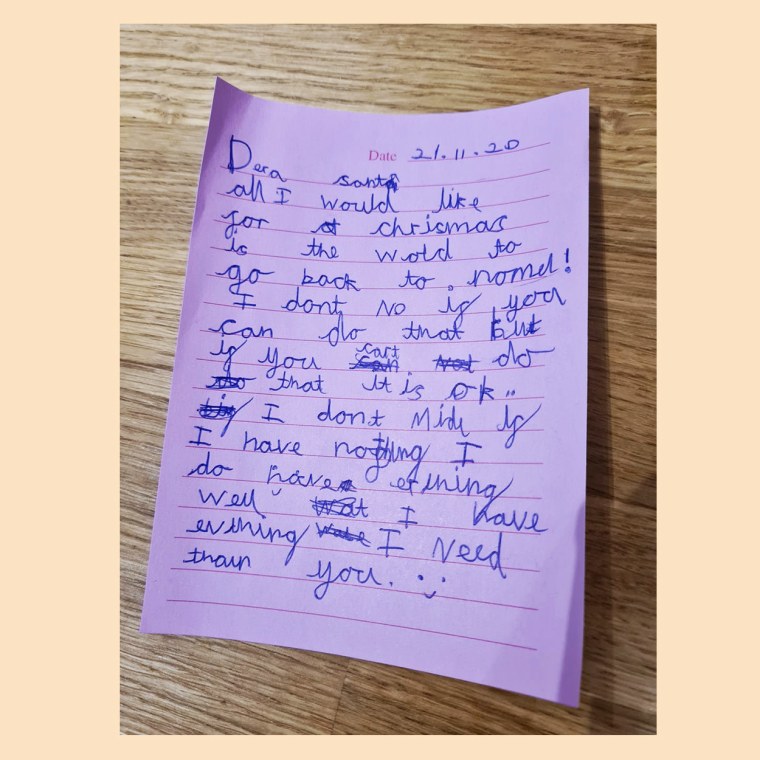 Date 21.11.20
Dera santa
all I would like
for chrismas
is the wold to
go back to nomel!
I dont no if you
can do that but
if you cart do
that it is ok..
I dont Mide if
I have nothing I
do have erthing
well I have
evrthing I Need
thaun you. :)